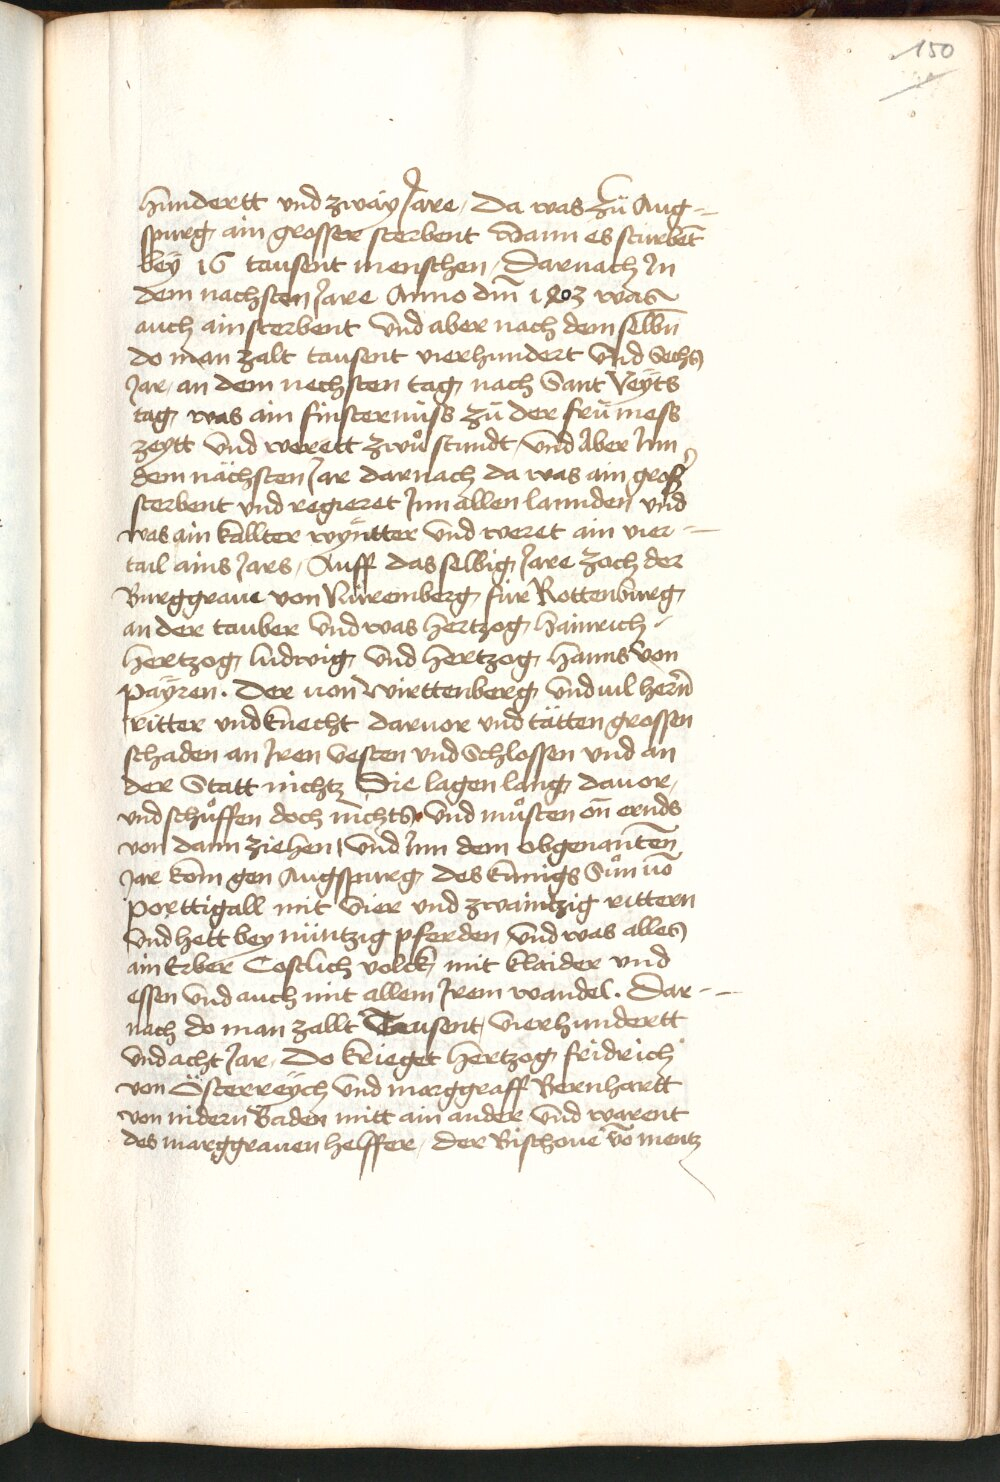 150
hundertt und zway Jare, Da was zu Aug-
spurg ain grosser sterbent Wann es sturbent̄
bey 16 tausent menschen, Darnach Jn
dem nachsten Jare Anno dm̄ 1403 was
auch ain sterbent Und aber nach dem selbn̄
do man zalt tausent vierhundert Und Sechs
Jar, an dem nechsten tag nach Sant Veyts
tag was ain finsternüss zu der frümess
zeytt Und werett zwů stundt, Und Aber Jnn
dem nächsten Jar darnach da was ain groß
sterbent und regieret Jnn allen lannden und
was ain kallter wyntter Und weret ain vier-
tail ains Jars, Auff das selbig Jare zoch der
Burggraue von Nüremberg für Rottenburg
an der tauber Und was Hertzog Hainrich
Hertzog ludwig Und Hertzog Hanns Von
Payren. Der von Wirttenberg Und vil Hern̄
ritter und knecht daruor und tätten grossen
schaden an Jren Vesten und Schlossen und an
der Statt nichtz Die lagen lang dauor,
und schůffen doch nichts, Und můsten on̄ ernds
von dann ziehen, Und Jnn dem obgenanten̄
Jar kom gen Augspurg des kunigs Sůn vō
porttigall mit Vier und zwaintzig rittern
Und hett bey nüntzig pferden Und was alles
ain Erber Costlich volck mit klaider und
essen Und auch mit allem Jrem wandel. Dar-
nach do man zallt Tausent, Vierhundertt
Und acht Jar, Do krieget Hertzog fridrich
von Österreych Und marggraff Bernhartt
von nidern Baden mitt ain ander Und warent
des marggrauen helffer, der Bischoue Vō mentz